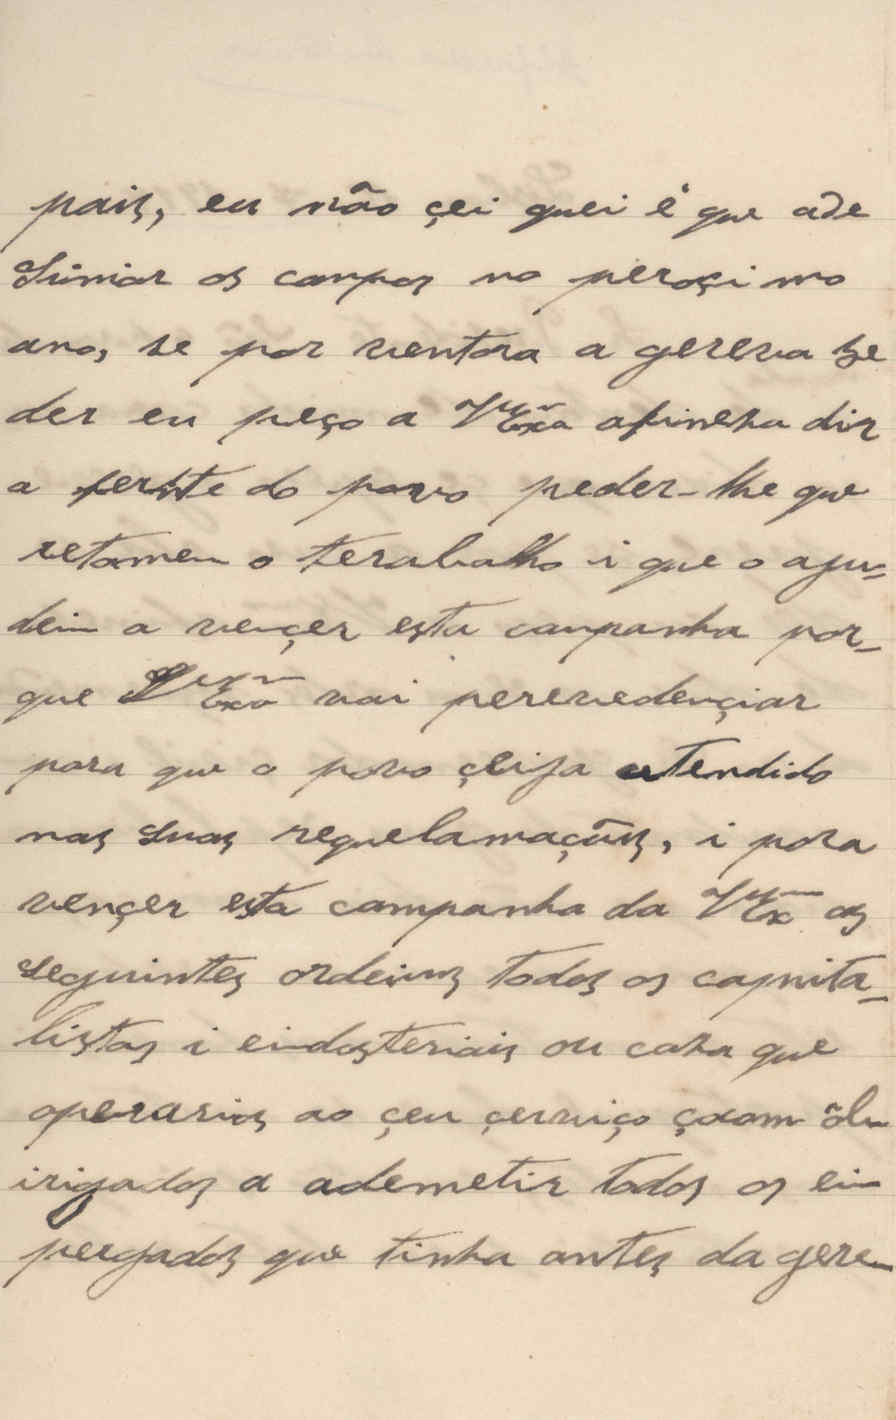 pais, eu não çei quei é que ade
Simiar os campos no peroçimo
ano, se por ventora a gereva se
der eu peço a V Exa a fineza dir
a fernte do povo peder-lhe que
retomen o terabalho i que o aju-
dein a vençer esta campanha por-
que V Exa vai perevedençiar
para que o povo çeija atendido
nas suas requelamaçõis, i para
vençer esta campanha da V Ex as
seguintes ordeins todos os capita-
listas i eindosteriais ou caza que
operarios ao çeu çerviço çoam ób
irigados a ademetir todos os ein
pergados que tinha antes da gere-